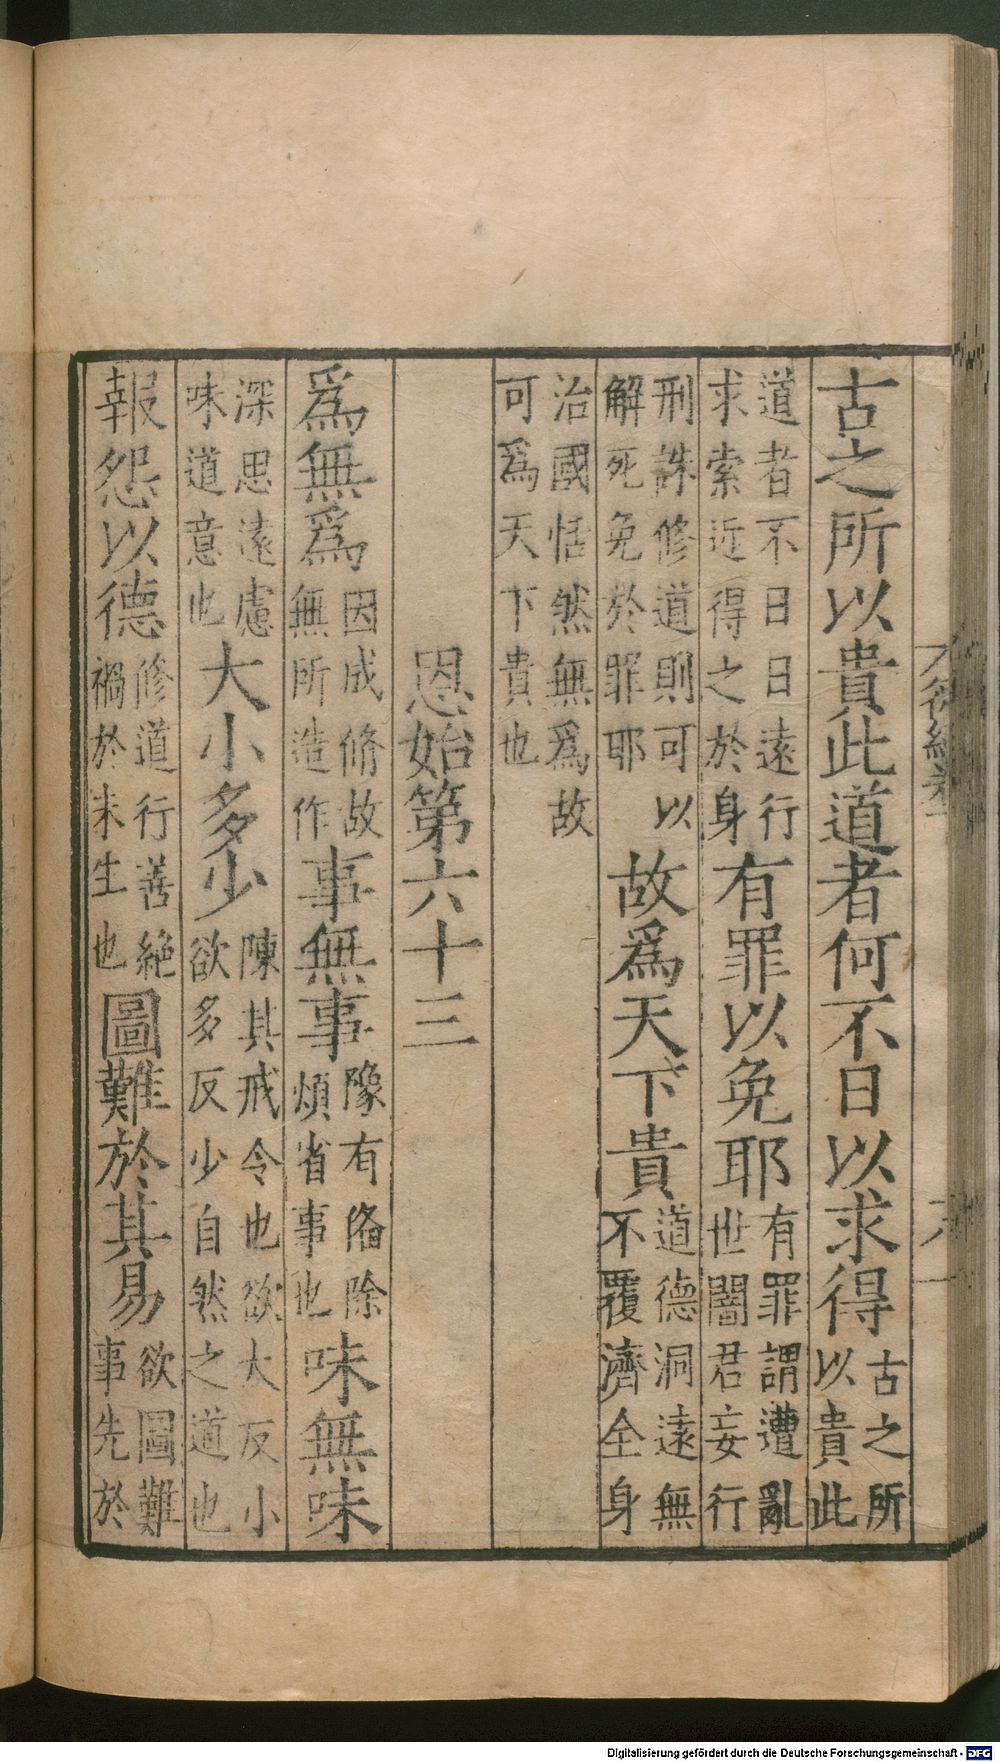 古之所以貴此道者何不日以求得古之所以貴此
道者不日日遠行求索近得之於身有罪以免耶有罪謂遭亂世闇君妄行
刑誅修道則可以解死免於罪耶故爲天下貴道德洞遠無不覆濟全身
治國恬然無爲故可爲天下貴也
恩始第六十三
爲無爲因成脩故無所造作事無事豫有俻除煩省事也味無味
深思遠慮味道意也大小多少陳其戒令也欲大反小欲多反少自然之道也
報怨以德修道行善絶禍於未生也圖難於其易欲圖難事先於
Digitalisierung gefördert durch die Deutsche Forschungsgemeinschaft - DFG